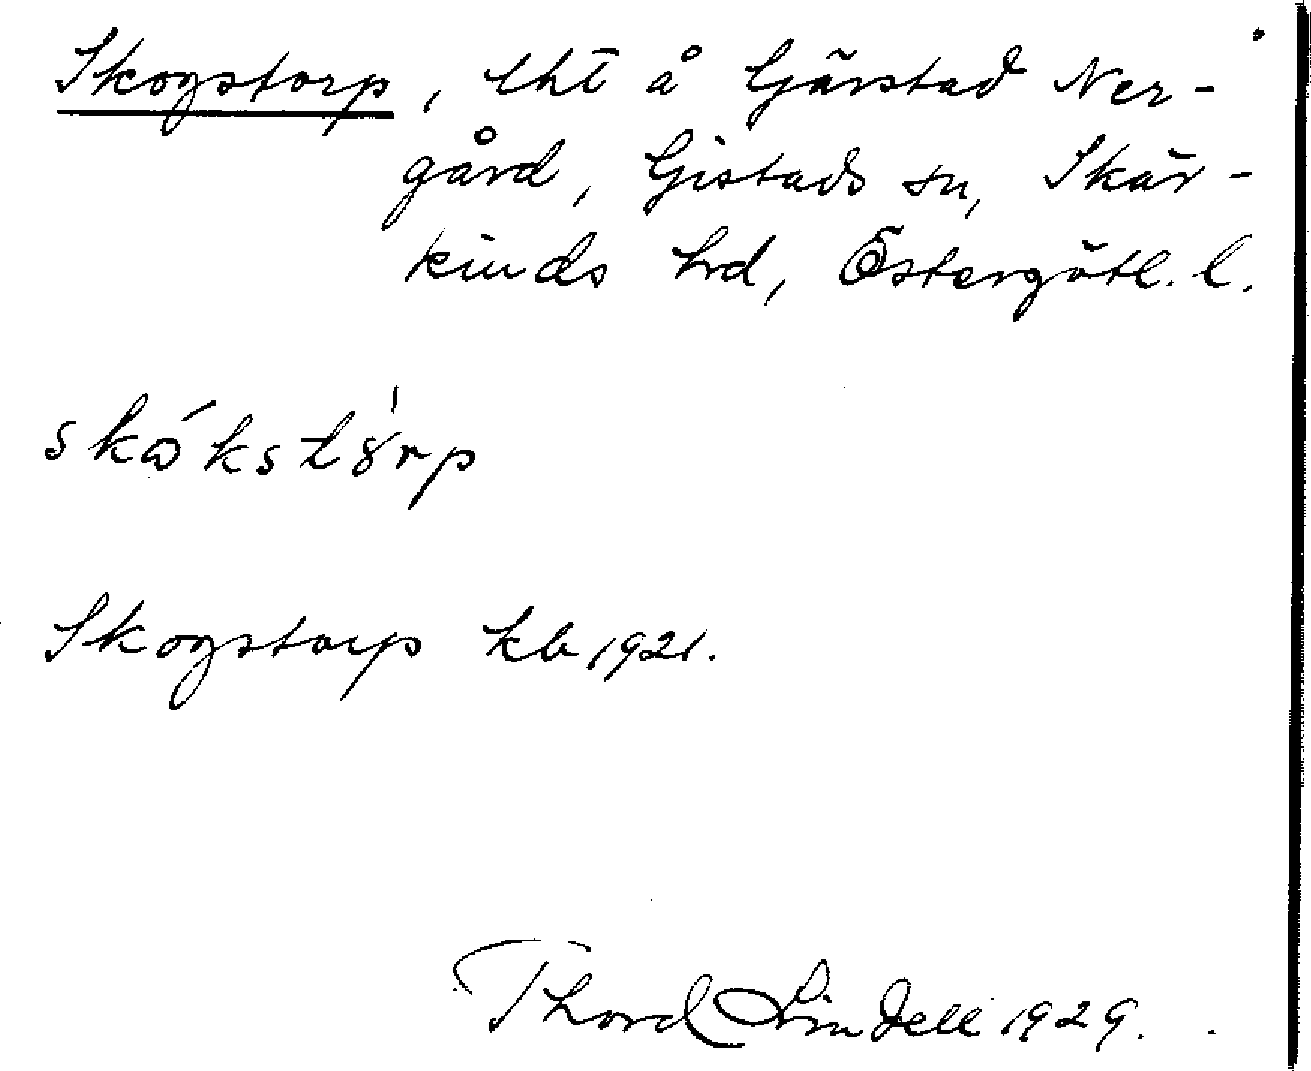 Skogstorp, lht å Gärstad Ner-
gård, Gistads sn, Skär-
kinds hrd, Östergötl. l.
skókstȣ̀rp
Skogstorp kb 1921.
Thord Lindell 1929.